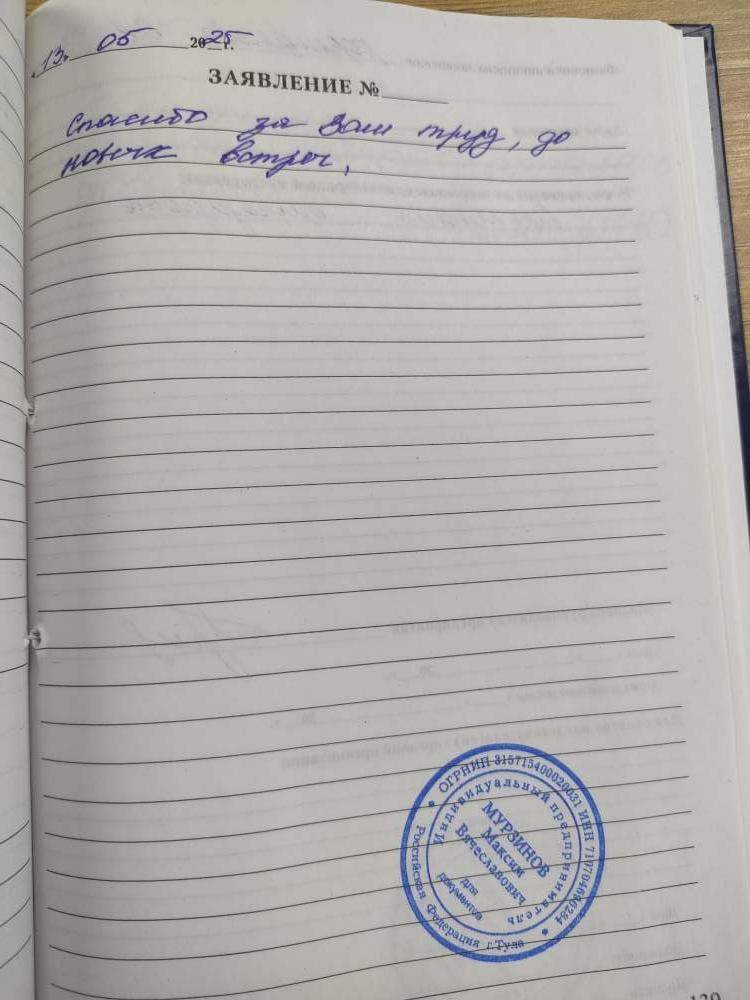 13. 05 2025 г.
ЗАЯВЛЕНИЕ №
Спасибо за Ваш труд, до
новых встреч.
ОГРНИП 315715400020031 ИНН 719704686284
Российская Федерация г.Тула
Индивидуальный предприниматель
МУРЗИНОВ
Максим
Вячеславович
для
документов
139